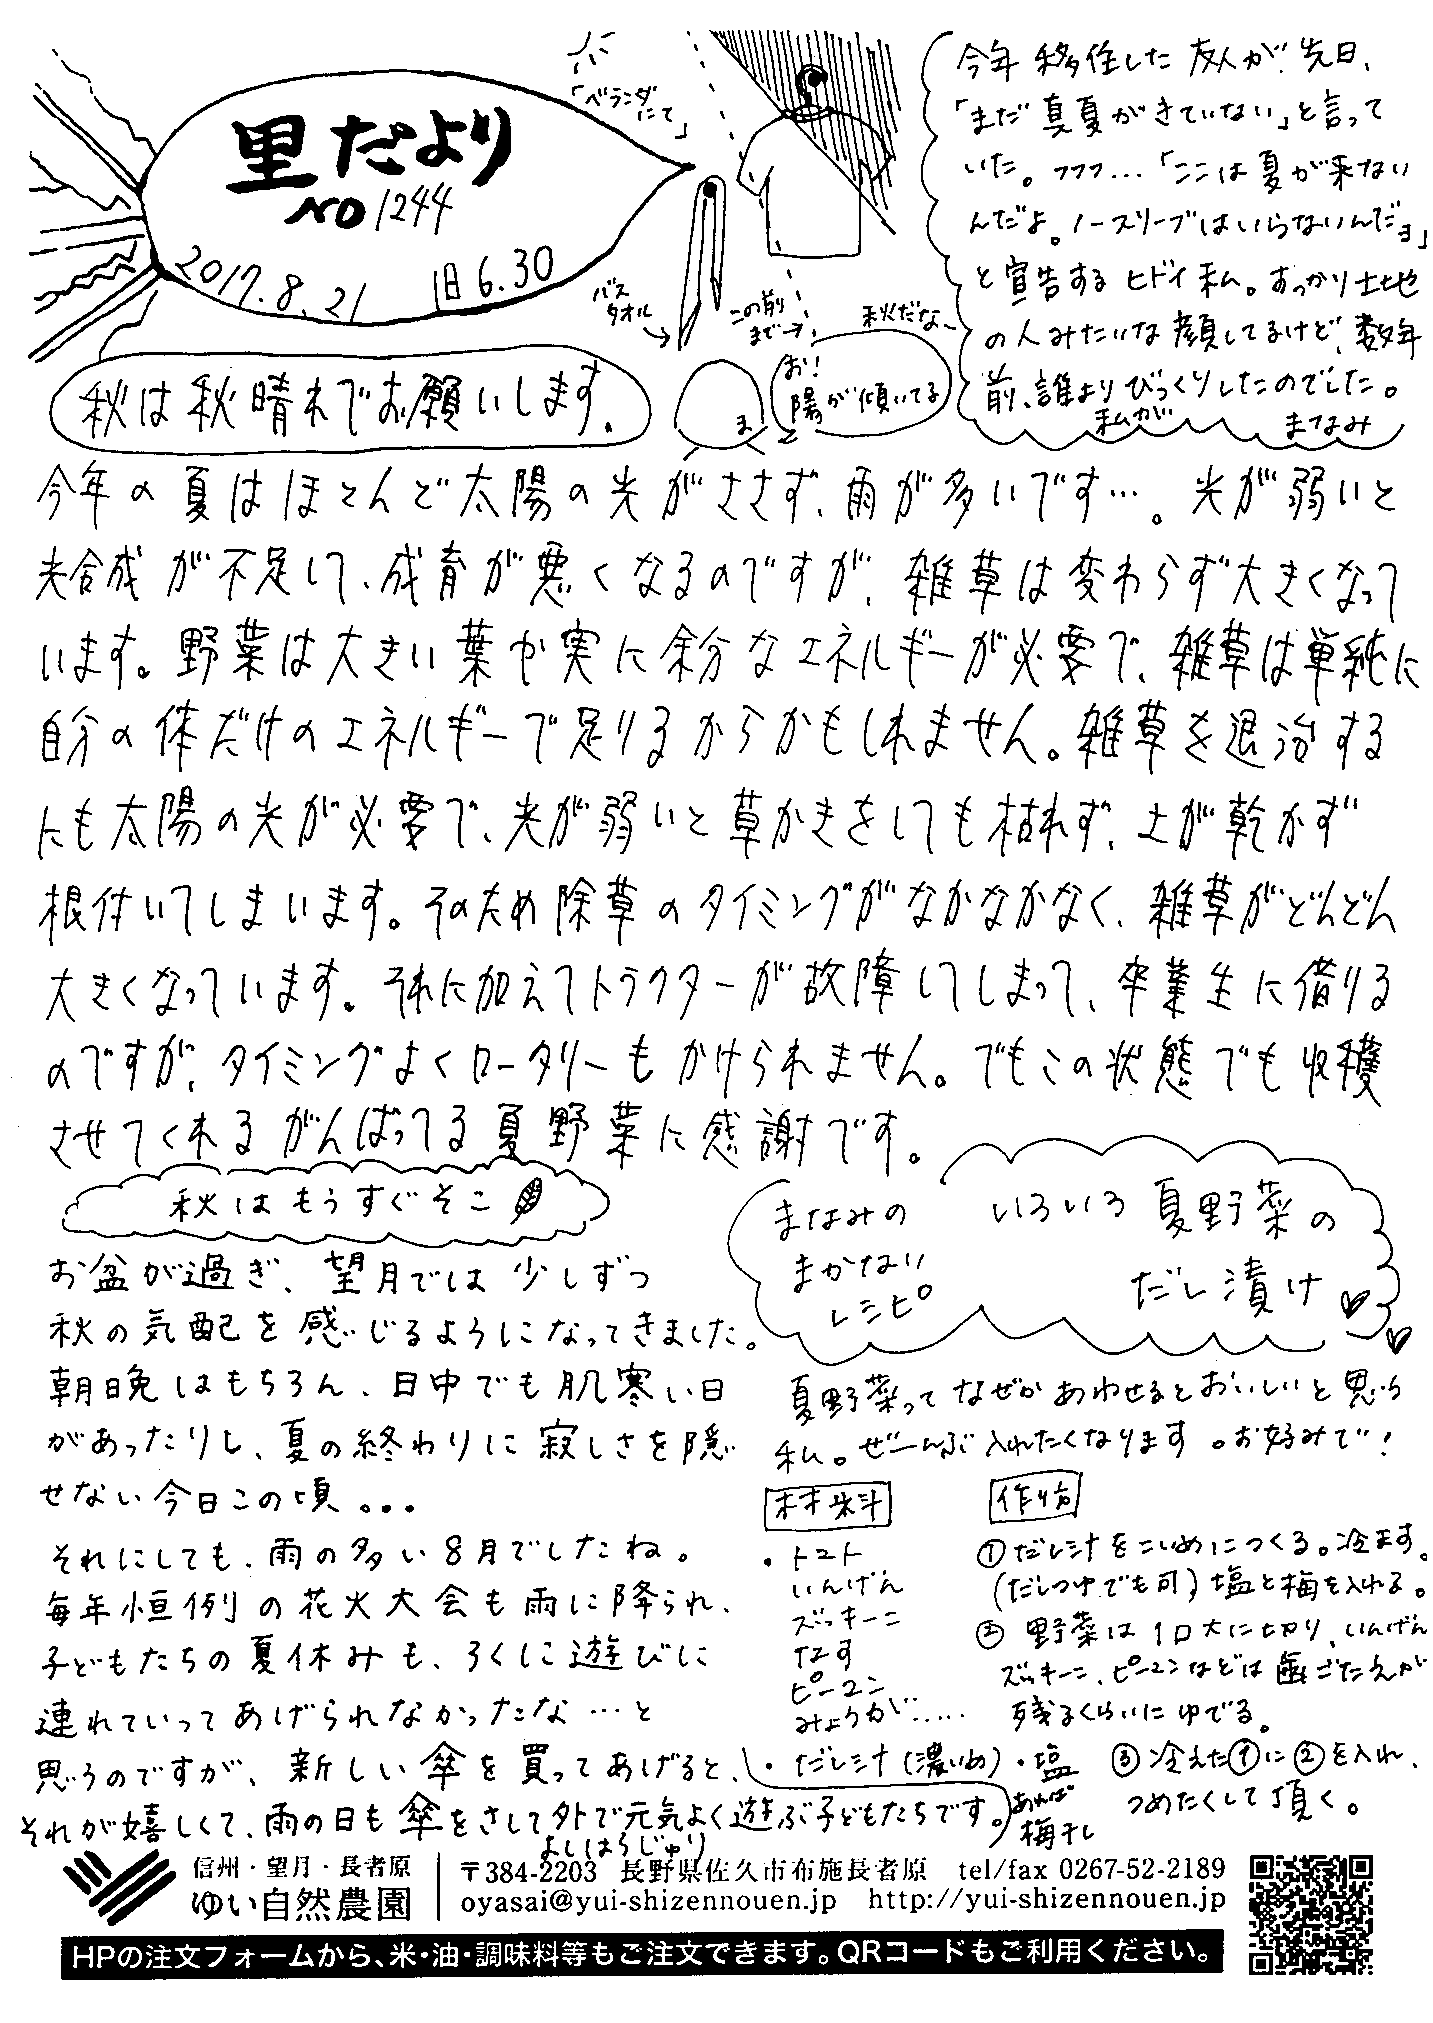 里だより
NO 1244
2017.8.21 旧6.30
「ベランダにて」
バスタオル→
この前まで→
秋だなー
お!陽が傾いてる
ま
今年移住した友人が、先日、
「まだ真夏がきていない」と言って
いた。フフフ…「ここは夏が来ない
んだよ。ノースリーブはいらないんだョ」
と宣告するヒドイ私。すっかり土地
の人みたいな顔してるけど、数年
前、誰よりびっくりしたのでした。
私が
まなみ
秋は秋晴れでお願いします。
今年の夏はほとんど太陽の光がささず、雨が多いです…。光が弱いと
光合成が不足して、成育が悪くなるのですが、雑草は変わらず大きくなって
います。野菜は大きい葉や実に余分なエネルギーが必要で、雑草は単純に
自分の体だけのエネルギーで足りるからかもしれません。雑草を退治する
にも太陽の光が必要で、光が弱いと草かきをしても枯れず、土が乾かず
根付いてしまいます。そのため除草のタイミングがなかなかなく、雑草がどんどん
大きくなっています。それに加えてトラクターが故障してしまって、卒業生に借りる
のですが、タイミングよくロータリーもかけられません。でもこの状態でも収穫
させてくれるがんばってる夏野菜に感謝です。
秋はもうすぐそこ
お盆が過ぎ、望月では少しずつ
秋の気配を感じるようになってきました。
朝晩はもちろん、日中でも肌寒い日
があったりし、夏の終わりに寂しさを隠
せない今日この頃。。。
それにしても、雨の多い8月でしたね。
毎年恒例の花火大会も雨に降られ、
子どもたちの夏休みも、ろくに遊びに
連れていってあげられなかったな…と
思うのですが、新しい傘を買ってあげると、
それが嬉しくて、雨の日も傘をさして外で元気よく遊ぶ子どもたちです。
よしはらじゅり
まなみの
まかない
レシピ
いろいろ夏野菜の
だし漬け
夏野菜ってなぜかあわせるとおいしいと思う
私。ぜーんぶ入れたくなります。お好みで!
材料
・トマト
いんげん
ズッキーニ
なす
ピーマン
みょうが……
・だし汁(濃いめ)・塩
あれば
梅干し
作り方
①だし汁をこいめにつくる。冷ます。
(だしつゆでも可)塩と梅を入れる。
②野菜は1口大に切り、いんげん
ズッキーニ、ピーマンなどは歯ごたえが
残るくらいにゆでる。
③冷えた①に②を入れ、
つめたくして頂く。
信州・望月・長者原
ゆい自然農園
〒384-2203 長野県佐久市布施長者原 tel/fax 0267-52-2189
oyasai@yui-shizennouen.jp http://yui-shizennouen.jp
HPの注文フォームから、米・油・調味料等もご注文できます。QRコードもご利用ください。